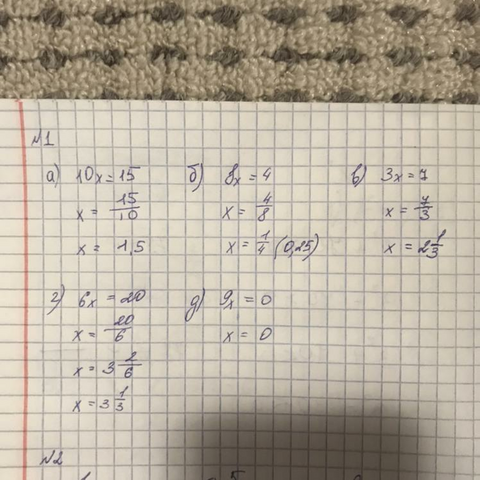 №1
а) 10x = 15
x = 15/10
x = 1,5
б) 8x = 4
x = 4/8
x = 1/4 (0,25)
в) 3x = 7
x = 7/3
x = 2 1/3
г) 6x = 20
x = 20/6
x = 3 2/6
x = 3 1/3
д) 9x = 0
x = 0
№2